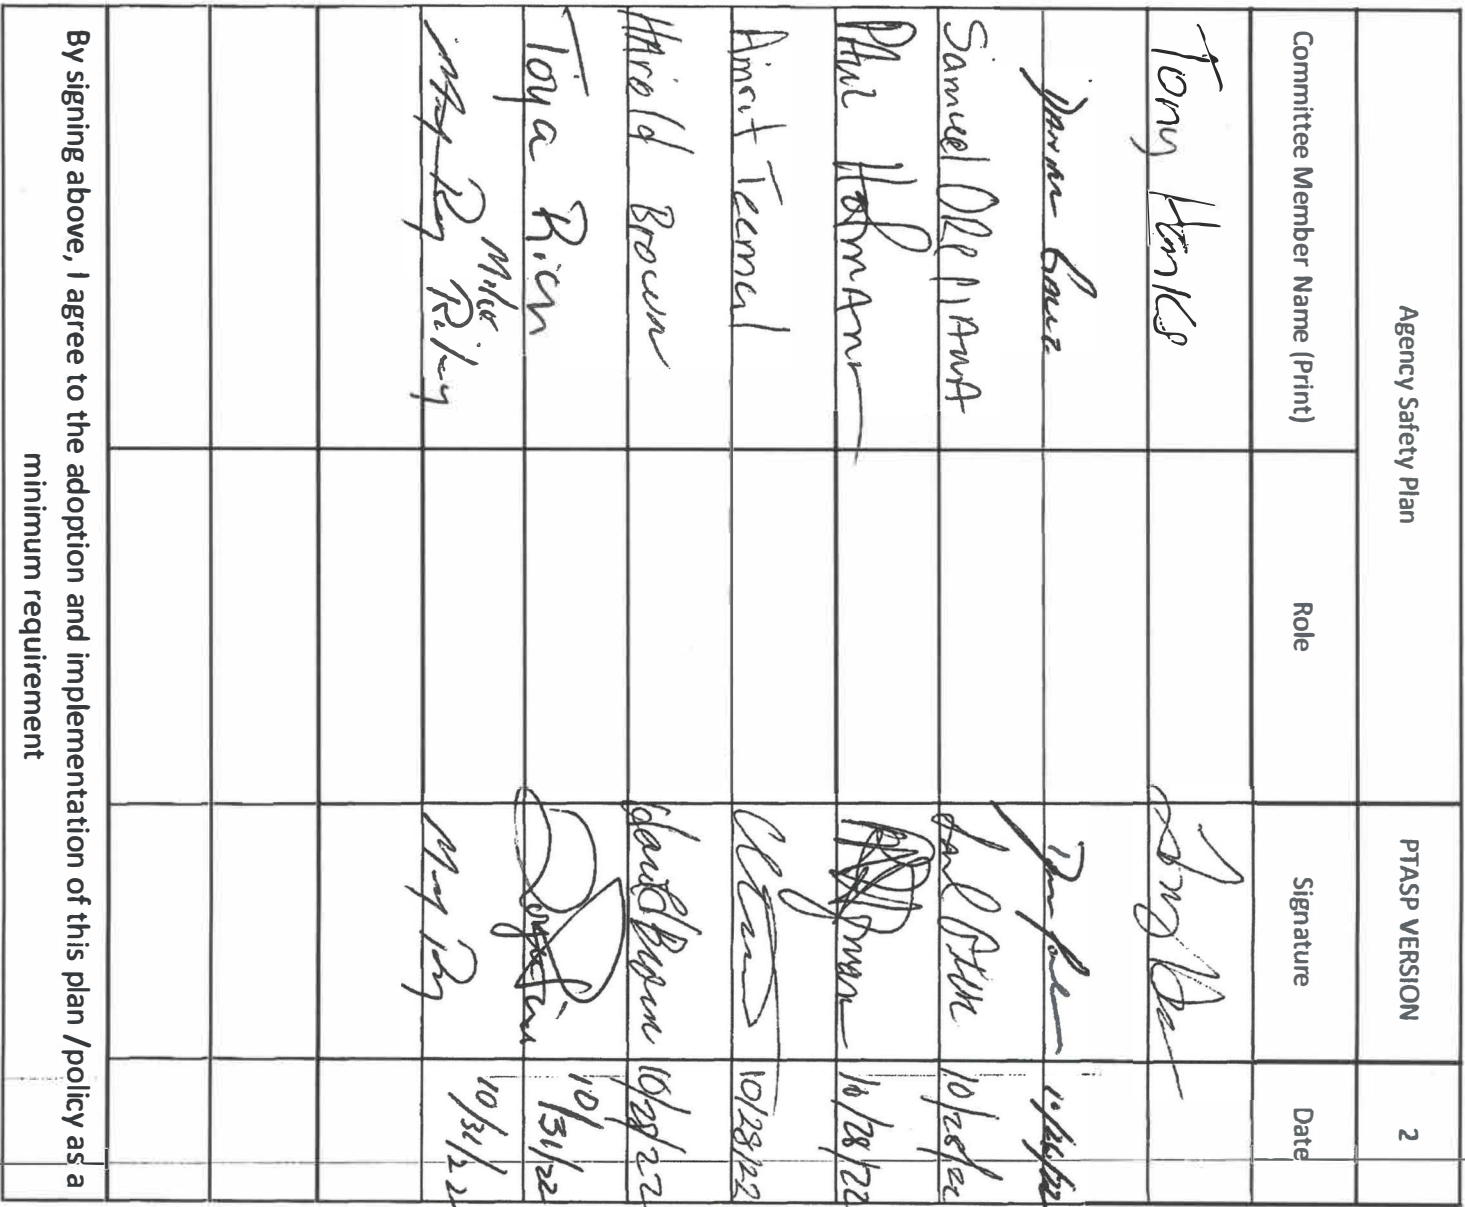 Agency Safety Plan PTASP VERSION 2
Committee Member Name (Print) Role Signature Date
Tony Hanks
10/26/22
Samuel 10/28/22
Phil Holman 10/28/22
Amrit Teemal 10/28/22
Harold Brown Harold Brown 10/28/22
Toya Rich 10/31/22
Mike Riley 10/31/22
By signing above, I agree to the adoption and implementation of this plan /policy as a
minimum requirement